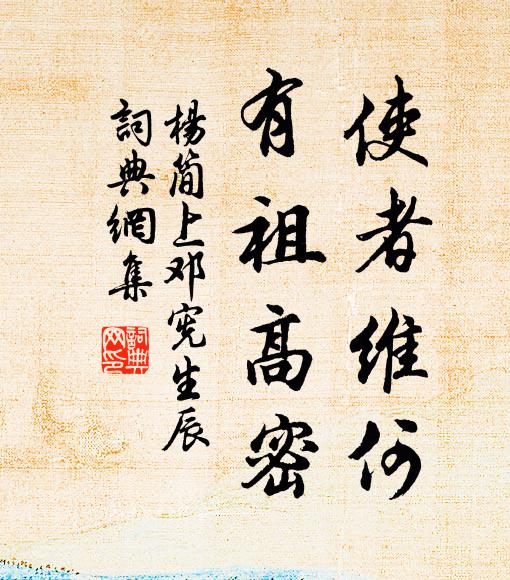 使者維何
有祖高密
楊簡上邓宪生辰
詞典網集
詞典
网印